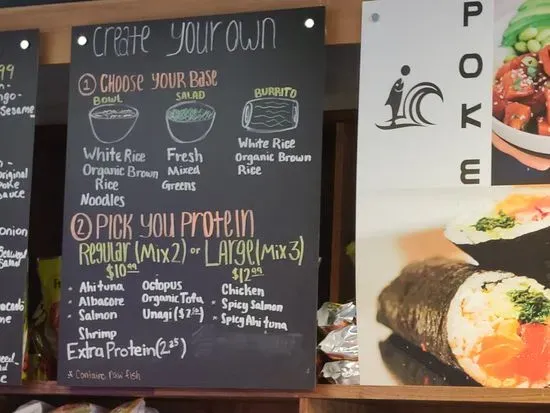 99
Sesame
Original
Poke
Sauce
onion
Salad
Create Your own
① CHOOSE YOUR BASE
BOWL
SALAD
BURRITO
White Rice
Organic Brown
Rice
Noodles
Fresh
Mixed
Greens
White Rice
Organic Brown
Rice
② PICK YOU PROTEIN
Regular (Mix 2) or Large (Mix 3)
$10.99
$12.99
* Ahi tuna
* Albacore
* Salmon
Shrimp
Octopus
Organic Tofu
Unagi
Chicken
* Spicy Salmon
* Spicy Ahi tuna
Extra Protein (2.25)
* Contains raw fish
POKE